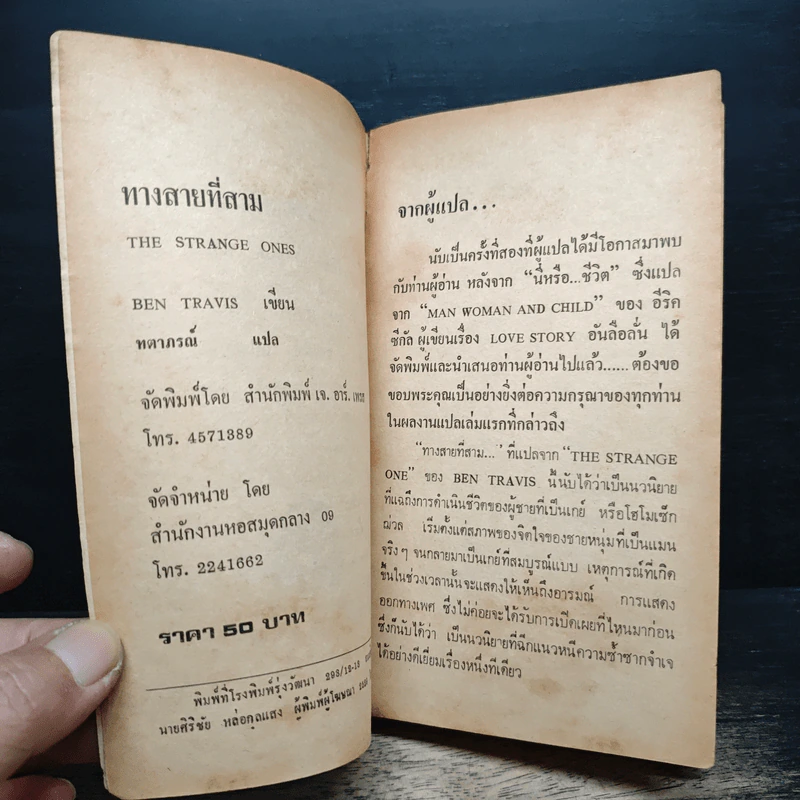 ทางสายที่สาม
THE STRANGE ONES
BEN TRAVIS เขียน
ทตาภรณ์ แปล
จัดพิมพ์โดย สำนักพิมพ์ เจ. อาร์.
โทร. 4571389
จัดจำหน่าย โดย
สำนักงานหอสมุดกลาง 09
โทร. 2241662
ราคา 50 บาท
พิมพ์ที่โรงพิมพ์รุ่งวัฒนา 293/12-13
นายศิริชัย หล่อกุลแสง ผู้พิมพ์ผู้โฆษณา
จากผู้แปล...
นับเป็นครั้งที่สองที่ผู้แปลได้มีโอกาสมาพบ
กับท่านผู้อ่าน หลังจาก “นี่หรือ...ชีวิต” ซึ่งแปล
จาก “MAN WOMAN AND CHILD” ของ อีริค
ซีกัล ผู้เขียนเรื่อง LOVE STORY อันลือลั่น ได้
จัดพิมพ์และนำเสนอท่านผู้อ่านไปแล้ว...... ต้องขอ
ขอบพระคุณเป็นอย่างยิ่งต่อความกรุณาของทุกท่าน
ในผลงานแปลเล่มแรกที่กล่าวถึง
“ทางสายที่สาม...’ ที่แปลจาก “THE STRANGE
ONE” ของ BEN TRAVIS นี้นับได้ว่าเป็นนวนิยาย
ที่แฉถึงการดำเนินชีวิตของผู้ชายที่เป็นเกย์ หรือโฮโมเซ็ก
ฌ่วล เริ่มตั้งแต่สภาพของจิตใจของชายหนุ่มที่เป็นแมน
จริงๆ จนกลายมาเป็นเกย์ที่สมบูรณ์แบบ เหตุการณ์ที่เกิด
ขึ้นในช่วงเวลานั้นจะแสดงให้เห็นถึงอารมณ์ การแสดง
ออกทางเพศ ซึ่งไม่ค่อยจะได้รับการเปิดเผยที่ไหนมาก่อน
ซึ่งก็นับได้ว่า เป็นนวนิยายที่ฉีกแนวหนีความซ้ำซากจำเจ
ได้อย่างดีเยี่ยมเรื่องหนึ่งทีเดียว